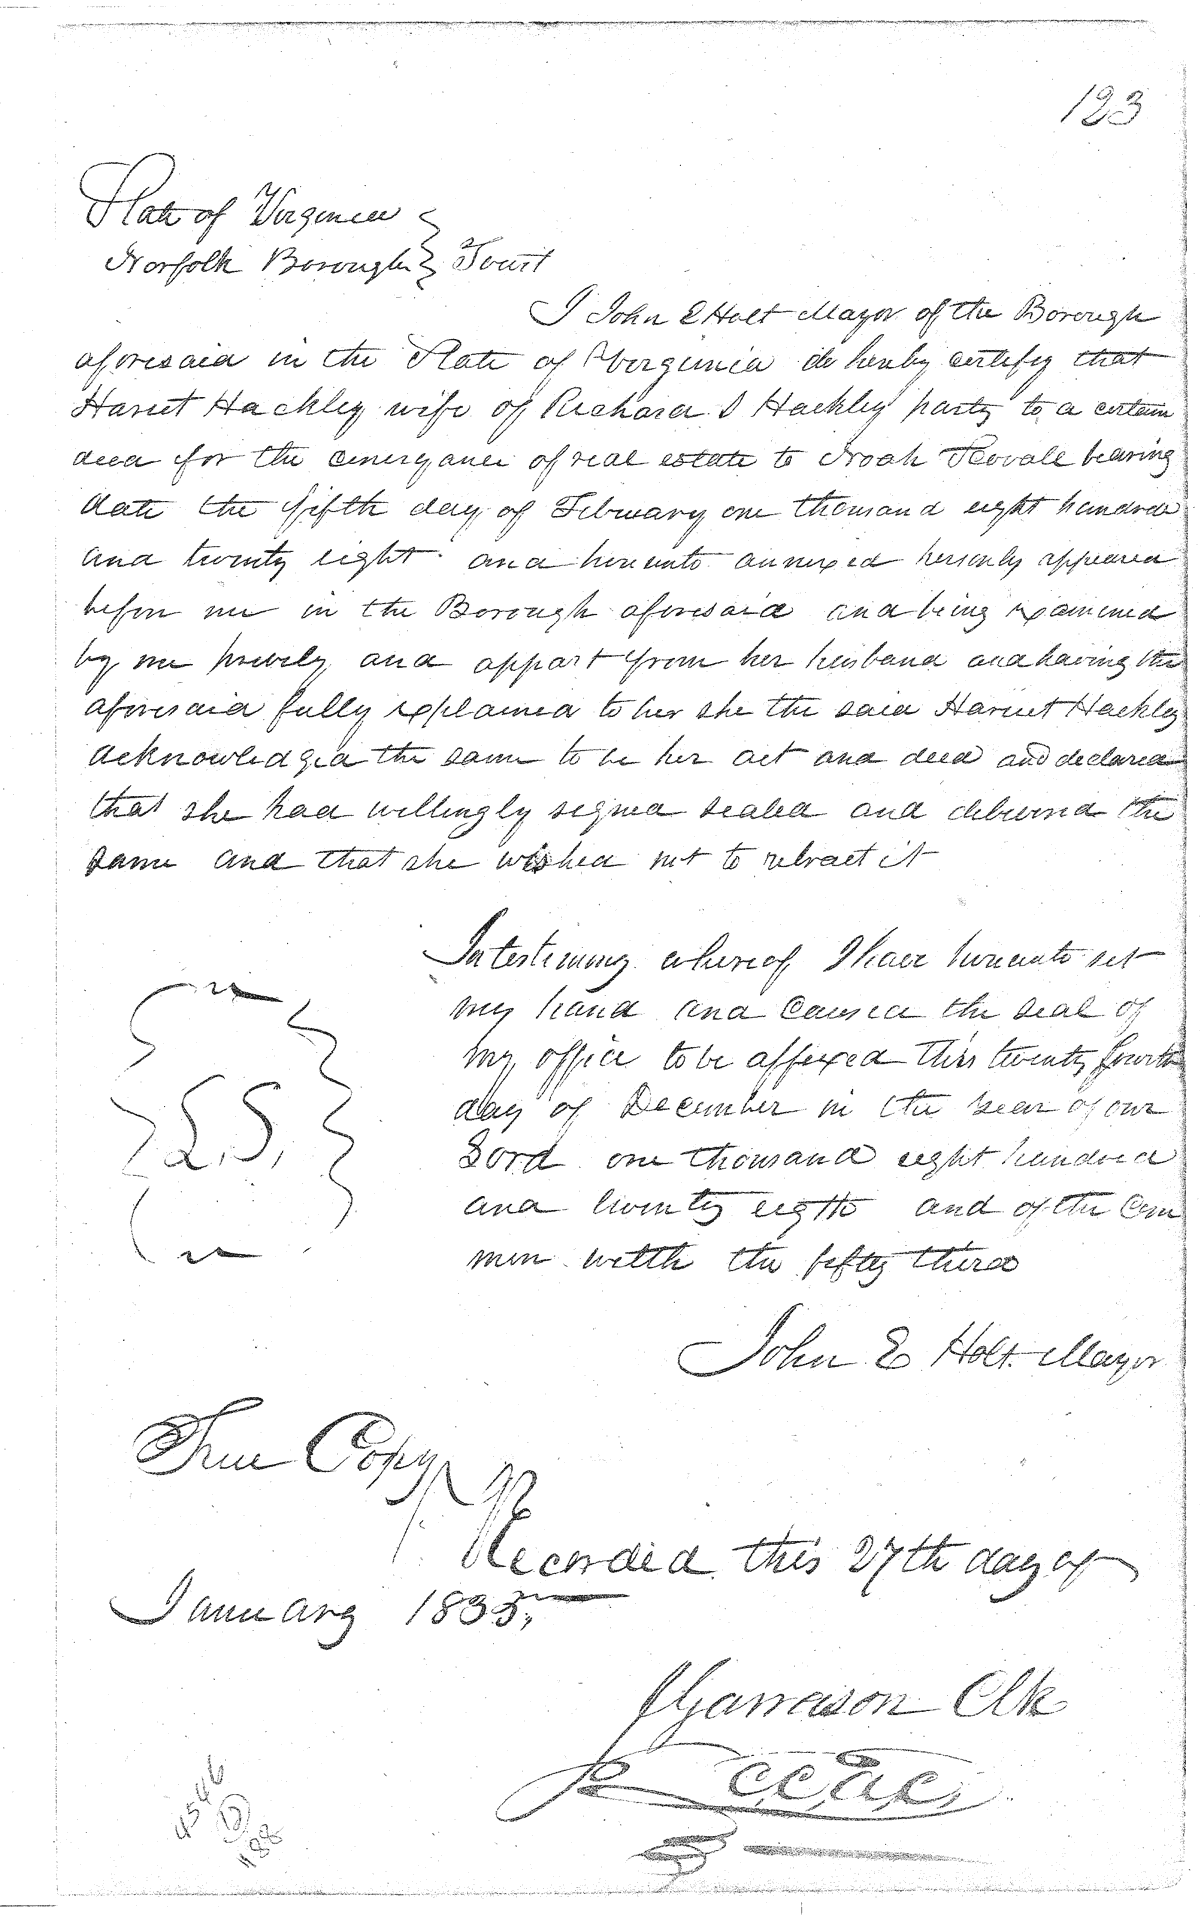 123
State of Virginia
Norfolk Borough } Towit
I John E Holt Mayor of the Borough
aforesaid in the State of Virginia do hereby certify that
Harriet Hackley wife of Richard S Hackley party to a certain
deed for the conveyance of real estate to Noah Scovale bearing
date the fifth day of February one thousand eight hundred
and twenty eight and hereunto annexed personly appeared
before me in the Borough aforesaid and being examined
by me privily and appart from her husband and having the
aforesaid fully explained to her she the said Harriet Hackley
acknowledged the same to be her act and deed and declared
that she had willingly signed sealed and delivered the
same and that she wished not to retract it
In testimony whereof I have hereunto set
my hand and caused the seal of
my office to be affixed this twenty fourth
day of December in the year of our
Lord one thousand eight hundred
and twenty eigth and of the Com
mon welth the fifty third
L.S.
John E Holt Mayor
True Copy
Recorded this 27th day of
January 1835,
J Garrason Clk
C.C.E.C.
4546
D
188